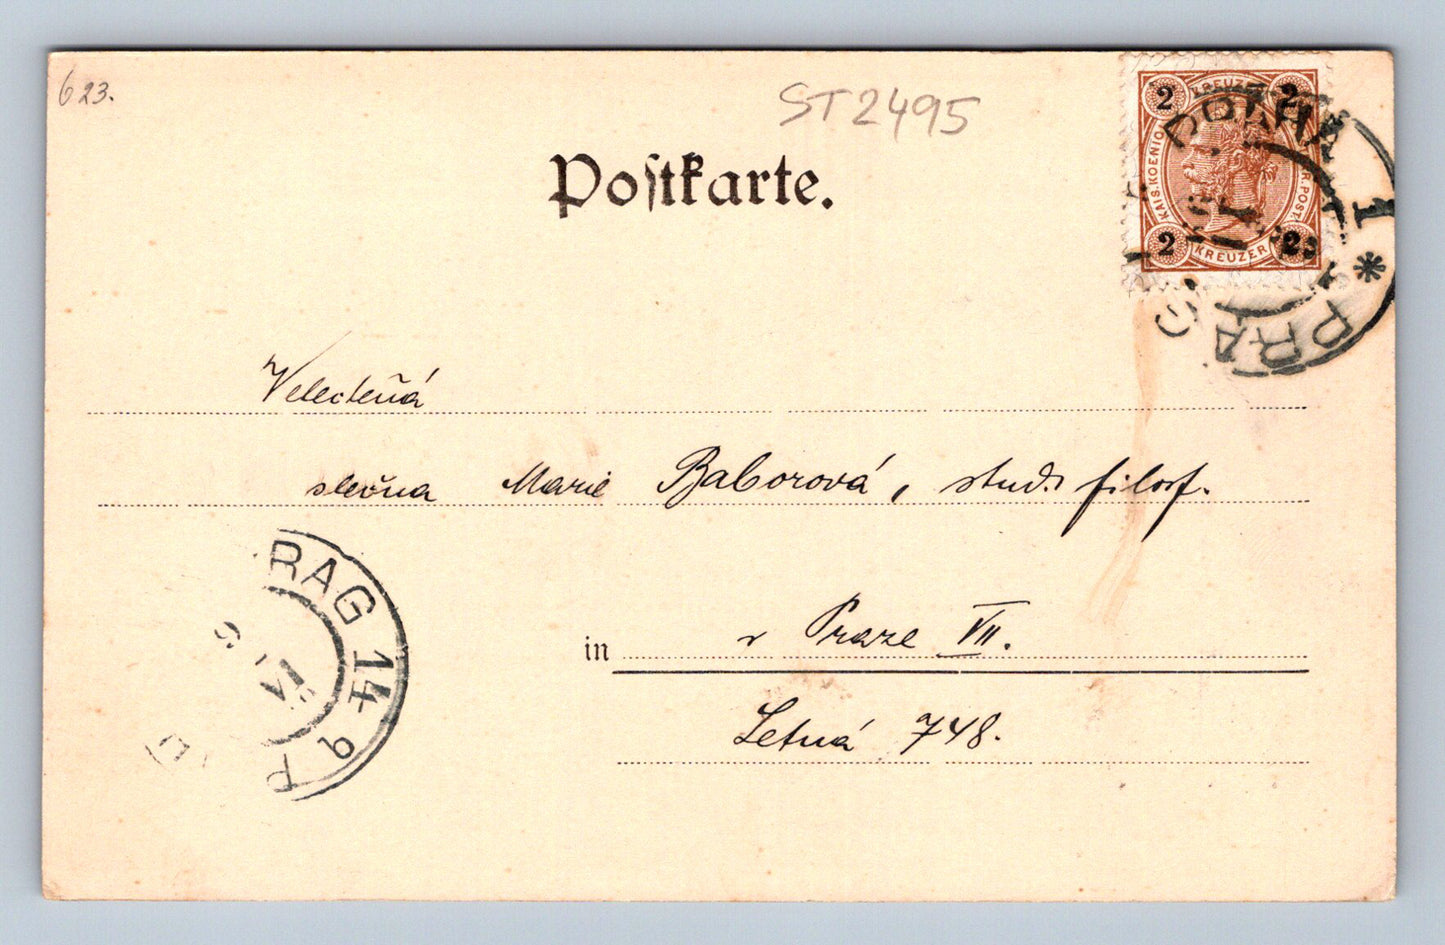 623.
ST2495
Postkarte.
2 KREUZER 2
KAIS. KOENIGL
R. POST.
2 KREUZER 2
PRAHA 1 * PRAG
Velectěná
slečna Marie Baborová, stud. filosf.
in v Praze VII.
Letná 748.
RAG 14 P